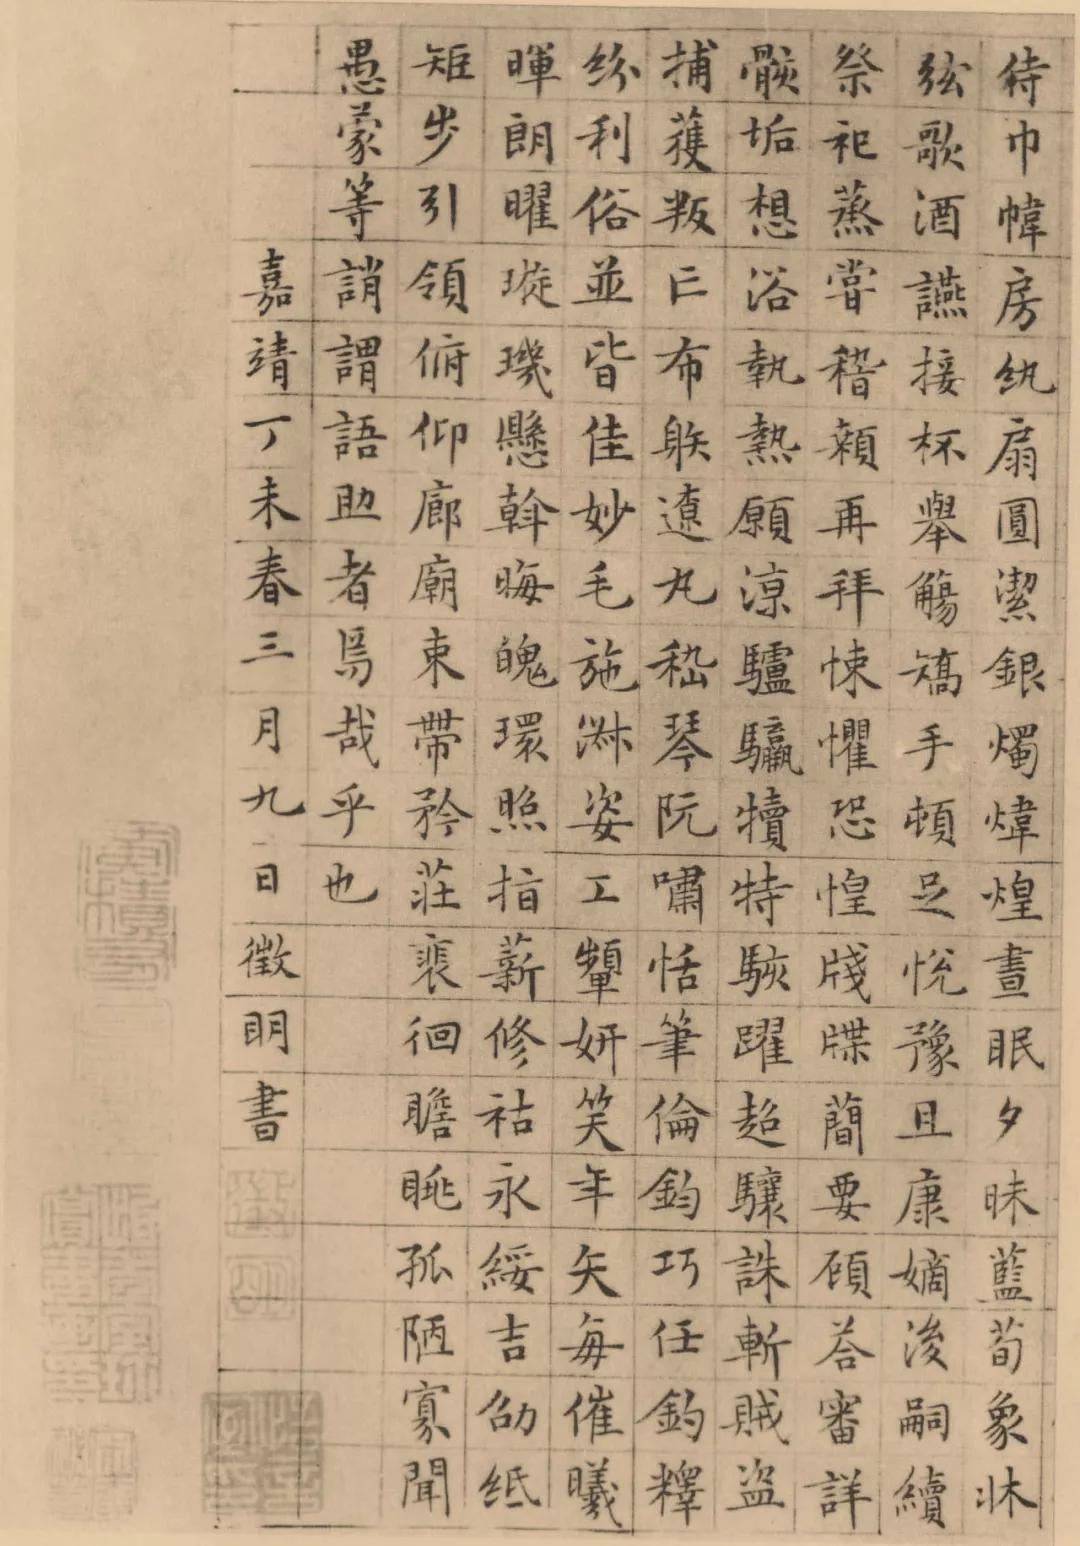 侍巾幃房紈扇圓潔銀燭煒煌晝眠夕昧藍荀象牀
弦歌酒讌接杯舉觴矯手頓足悅豫且康嫡後嗣續
祭祀蒸甞稽顙再拜悚懼恐惶牋牒蕳要顧荅審詳
骸垢想浴執熱願涼驢驘犢特駭躍超驤誅斬賊盜
捕獲叛亡布躲遼丸嵇琴阮嘯恬筆倫鈞巧任鈞釋
紛利俗並皆佳妙毛施淋姿工顰妍笑年矢每催曦
暉朗曜璇璣懸斡晦魄環照指薪修祜永綏吉劭紙
矩步引領俯仰廊廟束帶矜莊裵徊瞻眺孤陋寡聞
愚蒙等誚謂語助者焉哉乎也
嘉靖丁未春三月九日徵明書